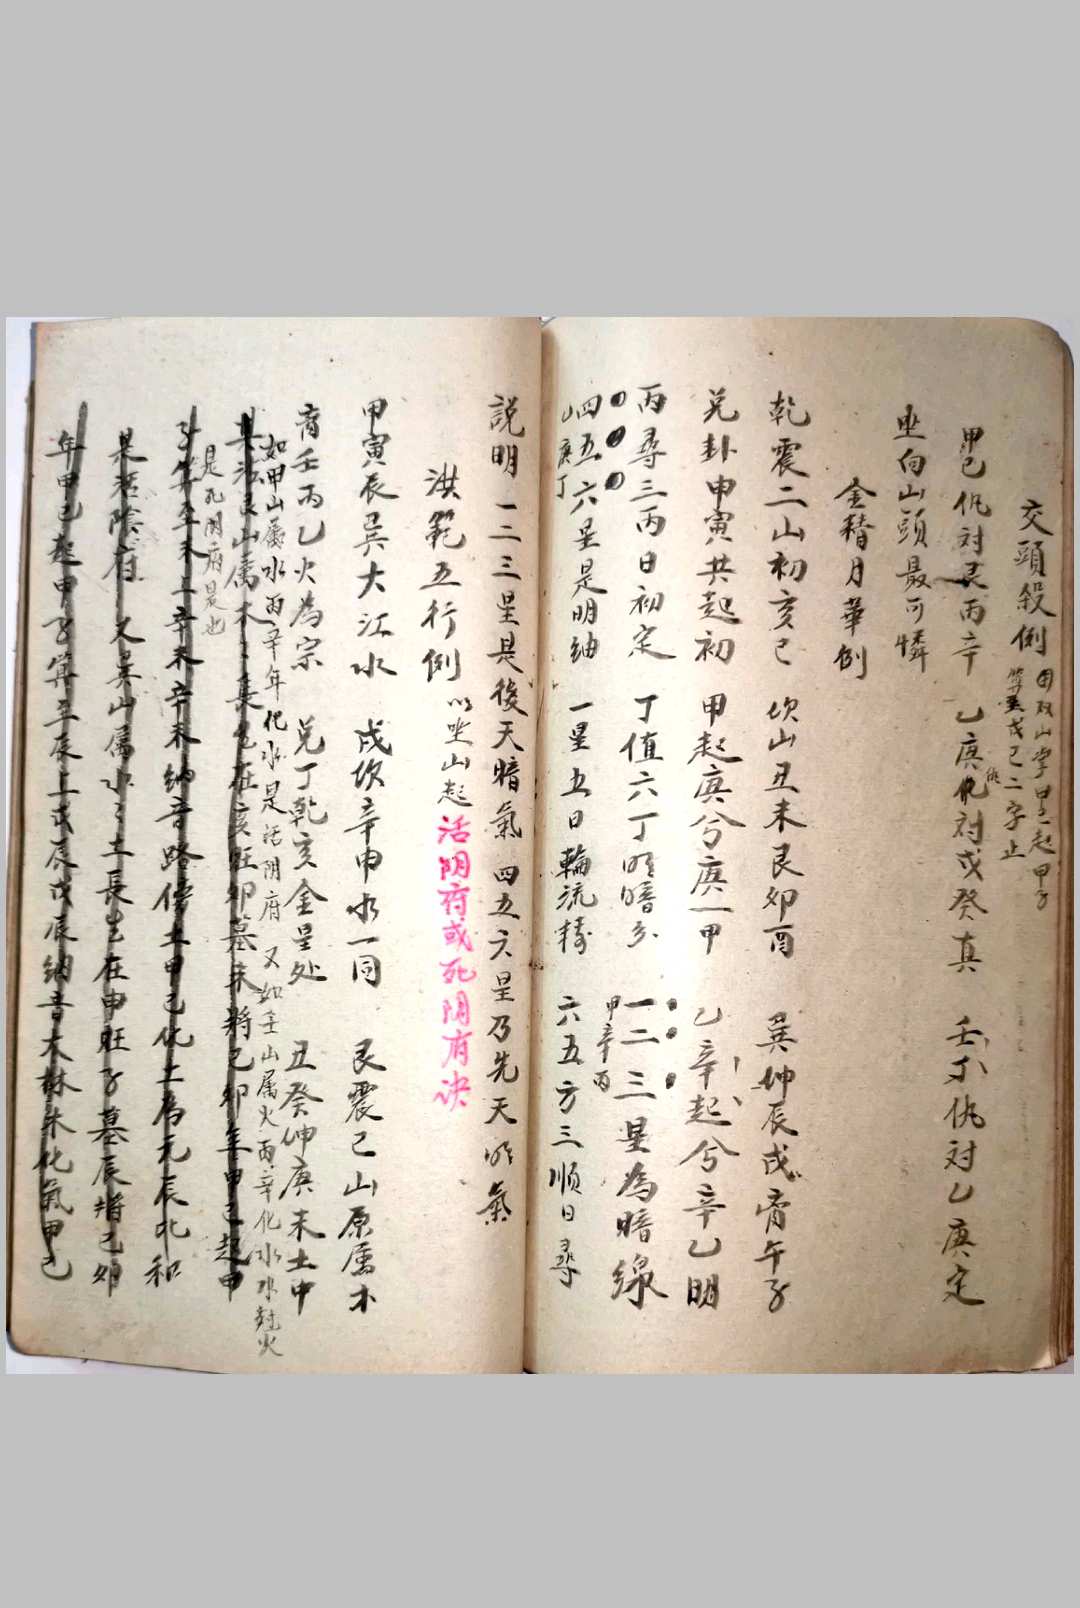 交頭殺例 因双山掌里起甲子
算至戊己二字止
甲己仇対艮丙辛 乙庚仇対戊癸真 壬丁仇対乙庚定
坐向山頭最可憐
金精月華例
乾震二山初亥巳 坎山丑未艮卯酉 巽坤辰戌离午子
兑卦申寅共起初 甲起庚兮庚一甲 乙辛起兮辛乙明
丙尋三丙日初定 丁值六丁明暗分 一二三星為暗線
甲辛丙
四五六星是明紬 一星五日輪流轉 六五方三順日尋
山庚丁
説明一二三星是後天暗氣 四五六星乃先天明氣
洪範五行例 以坐山起 活阴府或死阴府诀
甲寅辰巽大江水 戌坎辛申水一同 艮震巳山原属木
离壬丙乙火為宗 兑丁乾亥金星处 丑癸坤庚未土中
如甲山属水丙辛年化水是活阴府 又如壬山属火丙辛化水水尅火
是死阴府是也
其法艮山属木木長生在亥旺卯墓未将己卯年甲己起甲
子算至未上辛未辛未納音路傍土甲己化土為元辰比和
是活陰府 又巽山属水水土長生在申旺子墓辰将己卯
年甲己起甲子算至辰上戊辰戊辰納音大林木化氣甲己